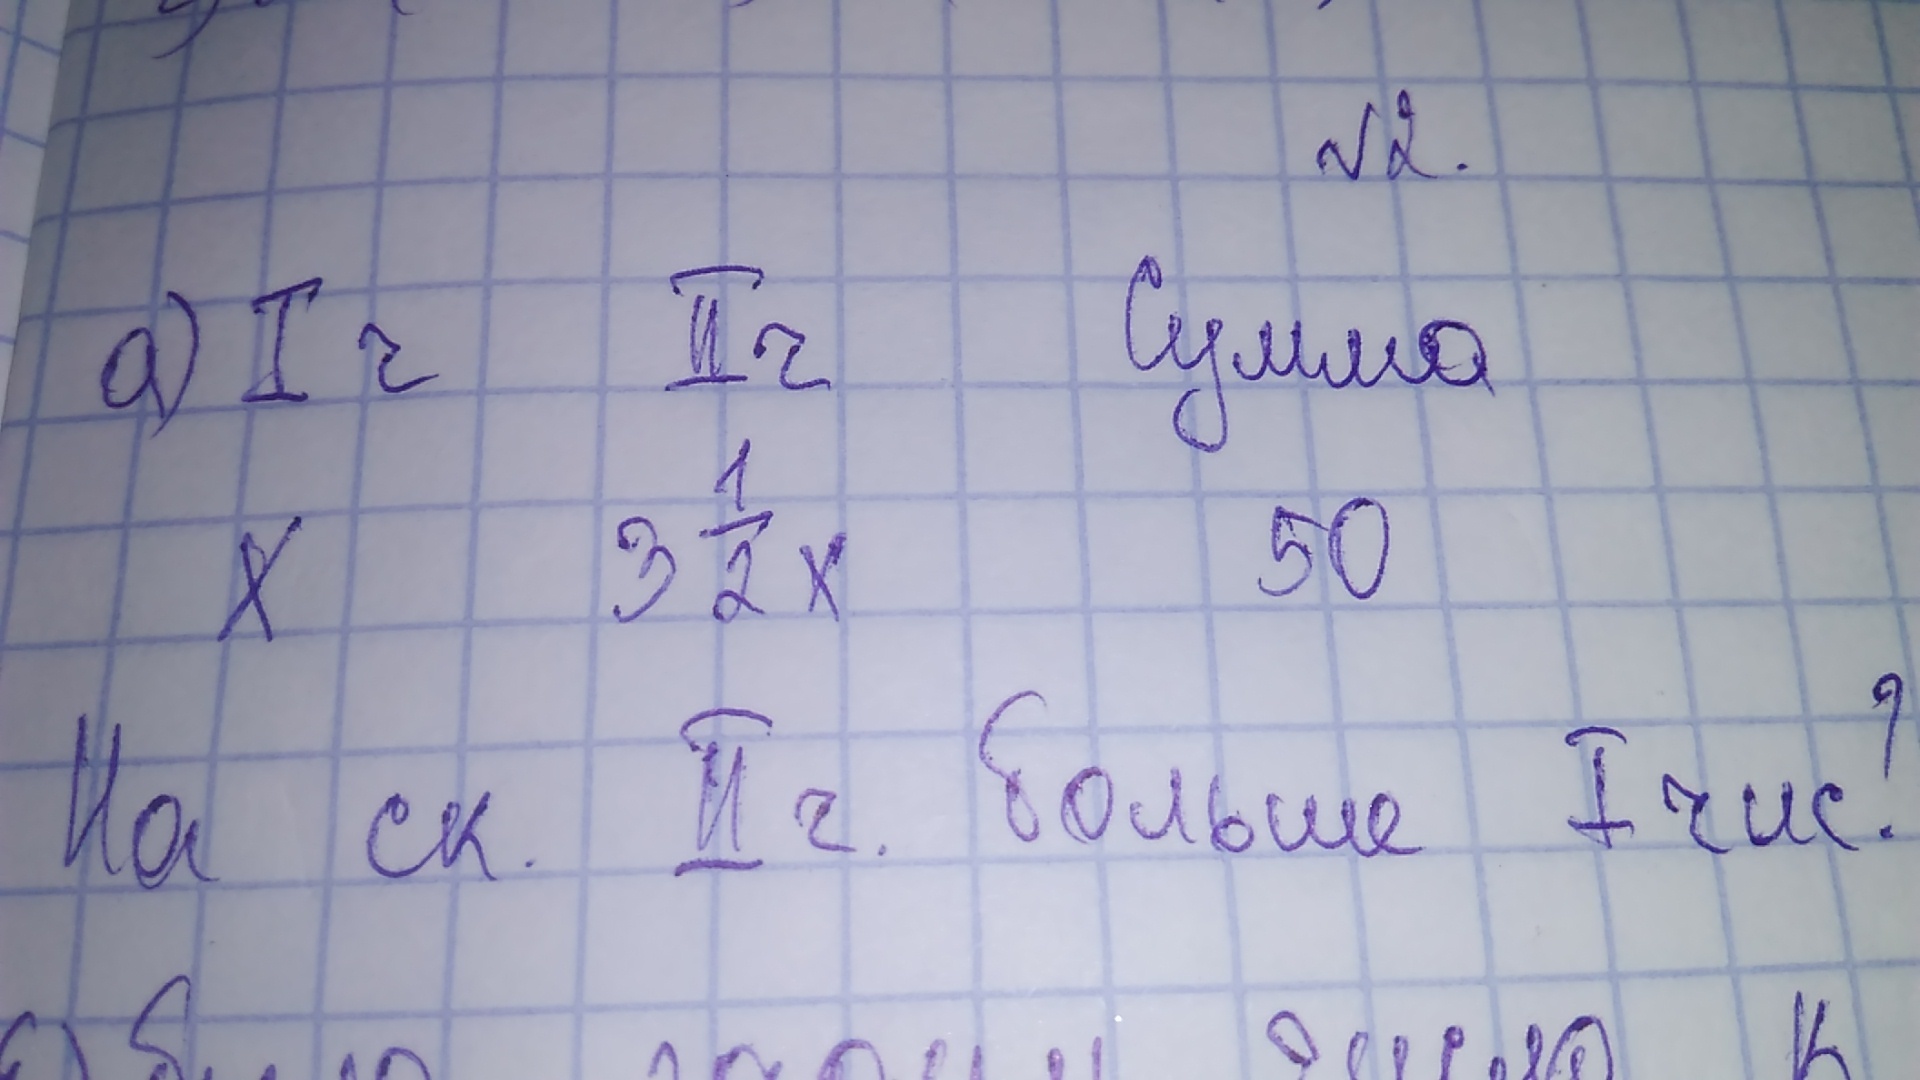 №2.
а) I ч II ч Сумма
x 3 1/2 x 50
На ск. II ч. больше I чис?